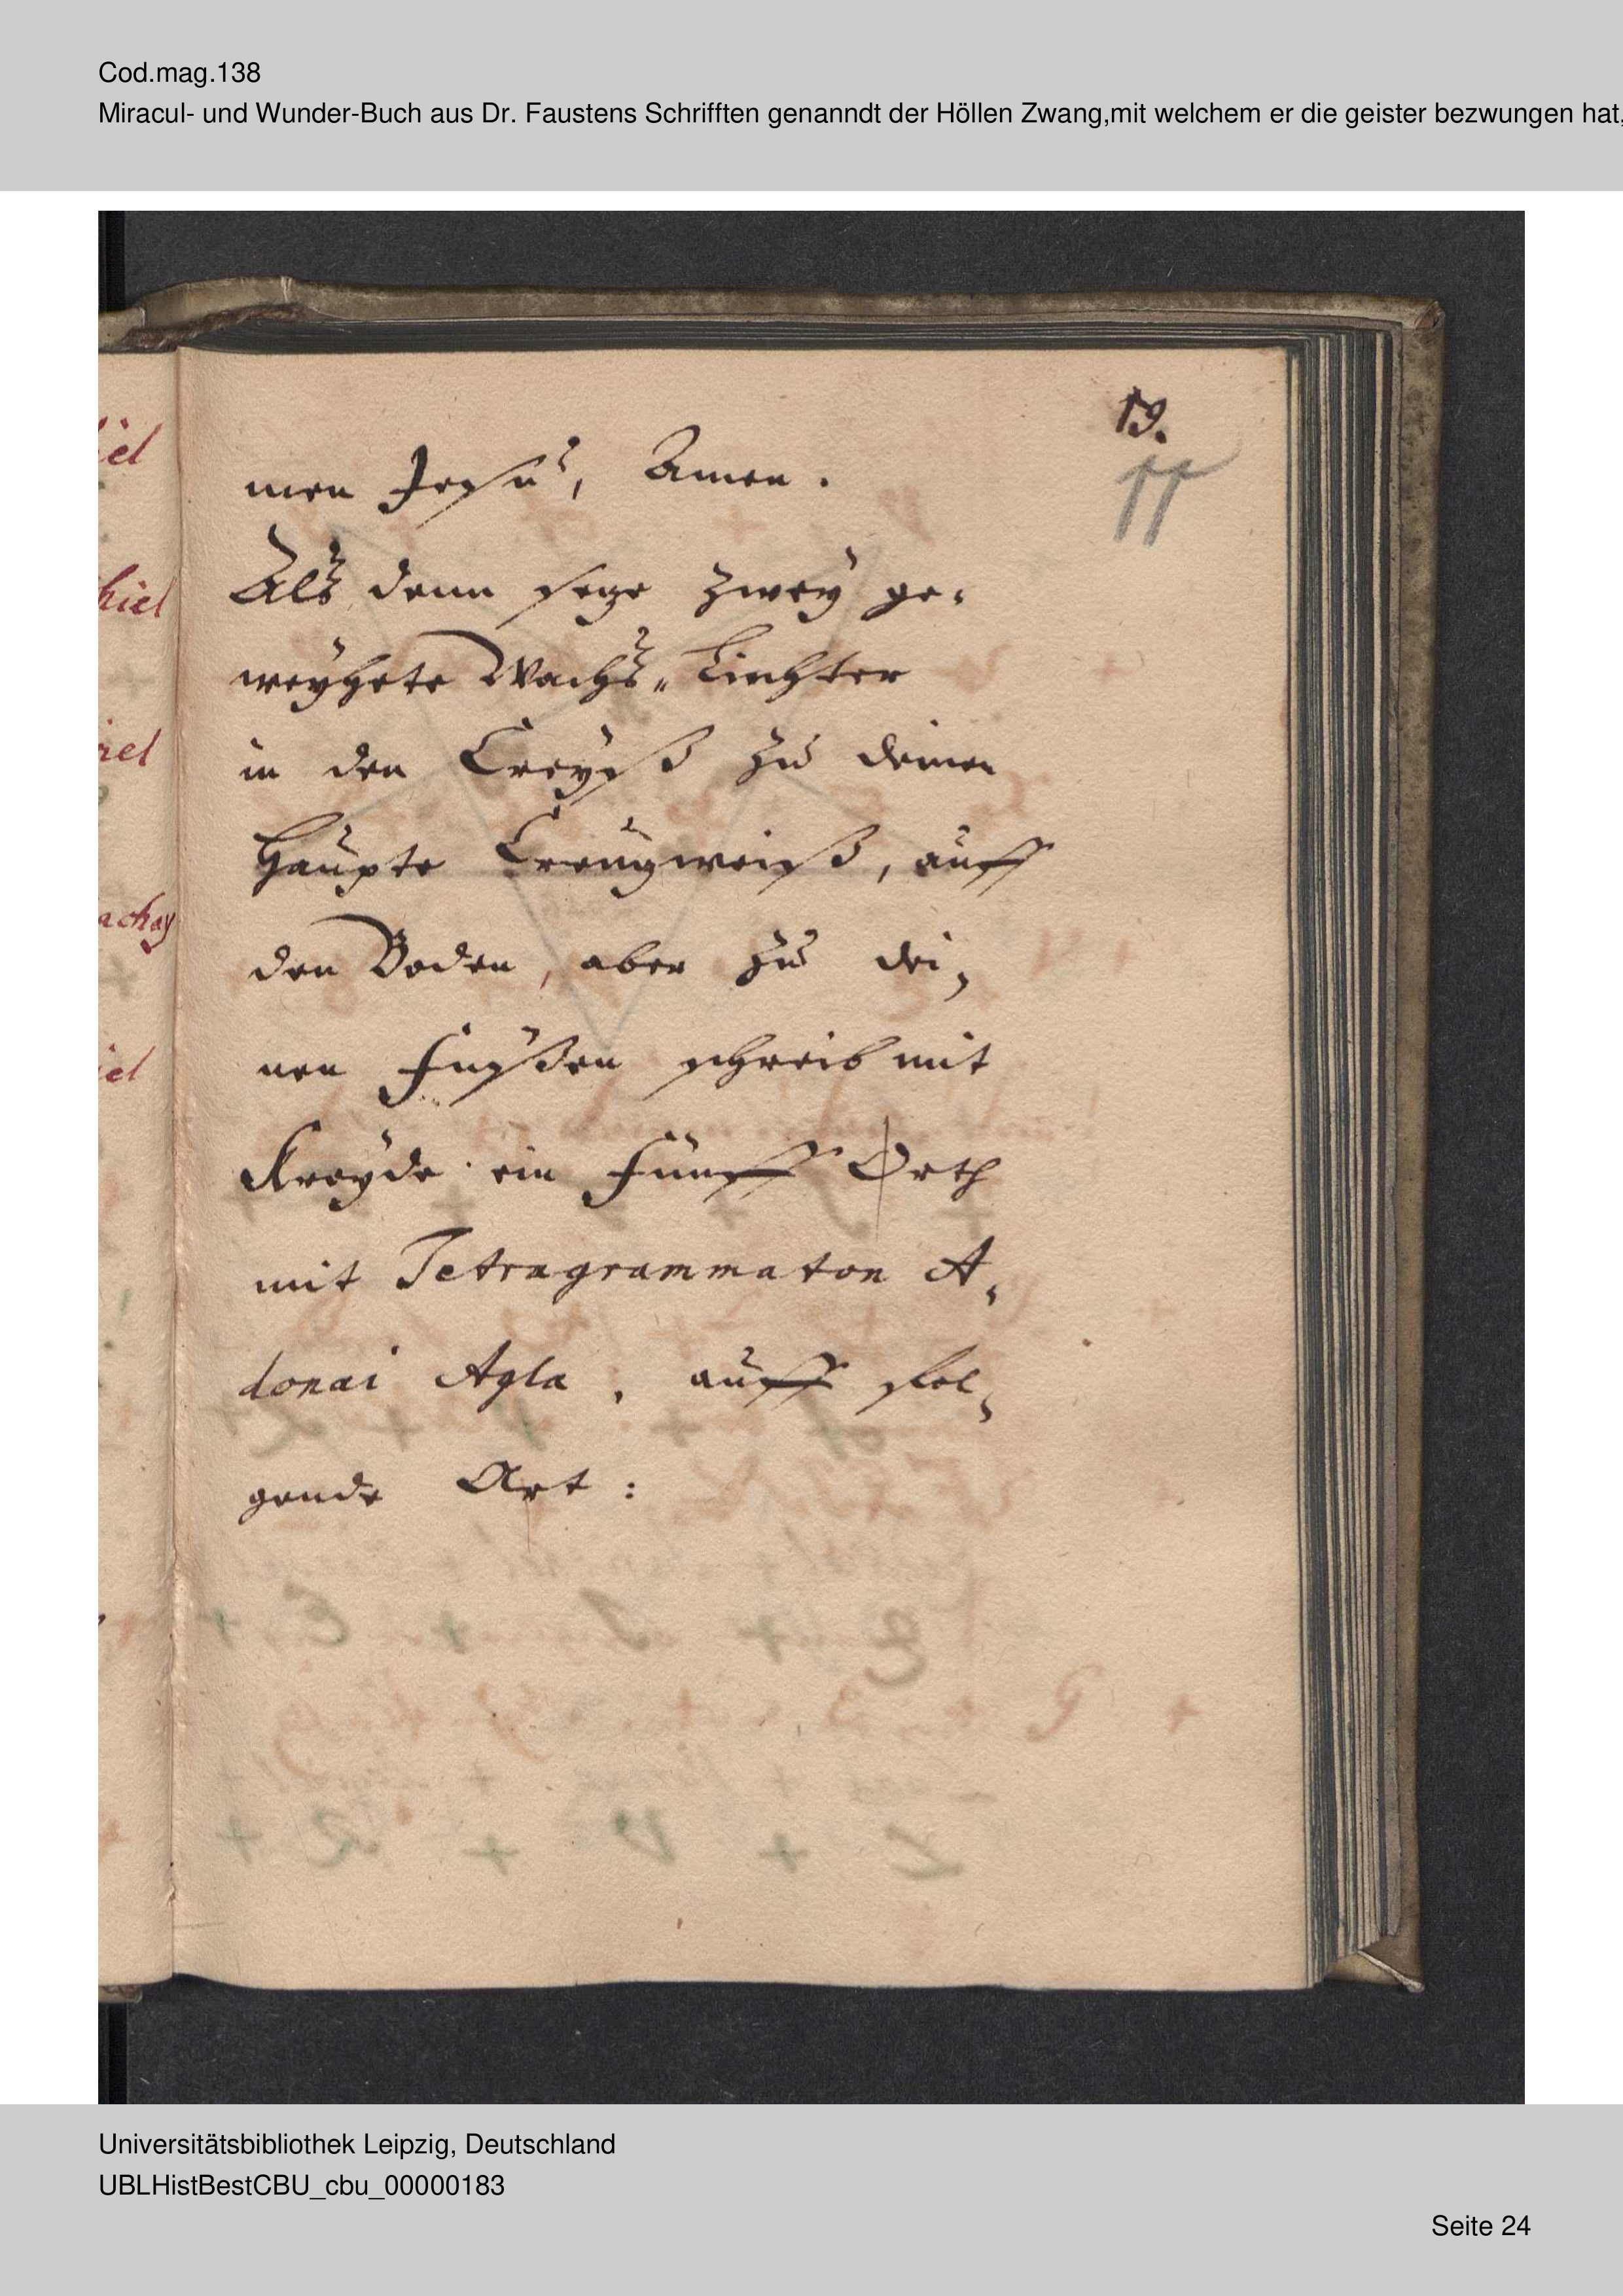 Cod.mag.138
Miracul- und Wunder-Buch aus Dr. Faustens Schrifften genanndt der Höllen Zwang,mit welchem er die geister bezwungen hat,
iel
hiel
riel
achay
iel
19.
11
men Jesu, Amen.
Als denn seze zwey ge-
weyhete Wachs-Liechter
in den Creyß zu deinen
Haupte Creuzweiß, auff
den Boden, aber zu dei-
nen Fuyßen schreib mit
Kreyde ein Fünff Orth
mit Tetragrammaton A-
donai Agla, auff fol-
gende Art:
Universitätsbibliothek Leipzig, Deutschland
UBLHistBestCBU_cbu_00000183
Seite 24